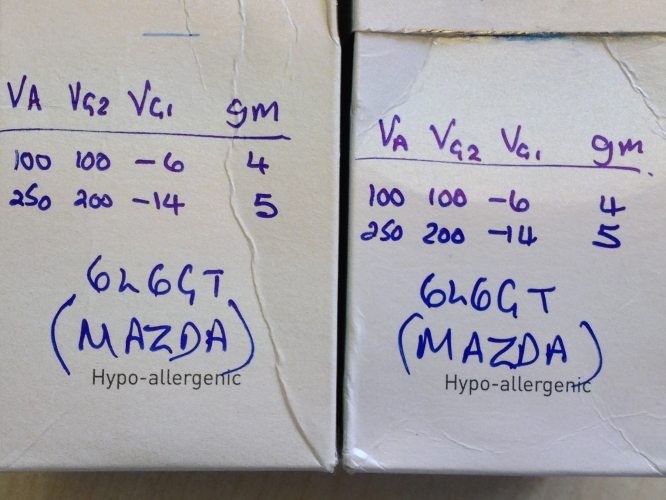 VA VG2 VG1 gm
100 100 -6 4
250 200 -14 5
6L6GT
(MAZDA)
Hypo-allergenic
VA VG2 VG1 gm
100 100 -6 4
250 200 -14 5
6L6GT
(MAZDA)
Hypo-allergenic